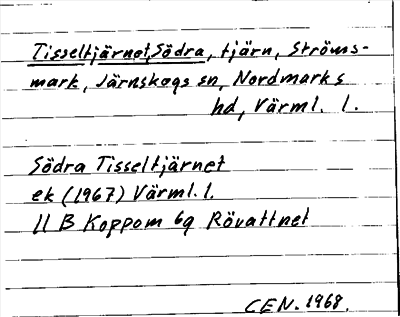 Tisseltjärnet, Södra, tjärn, Ströms-
mark, Järnskogs sn, Nordmarks
hd, Värml. l.
Södra Tisseltjärnet
ek (1967) Värml. l.
11 B Koppom 6g Rövattnet
CEN. 1968.